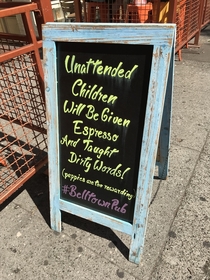 Unattended
Children
Will Be Given
Espresso
And Taught
Dirty Words!
(puppies are for rewarding
#BelltownPub